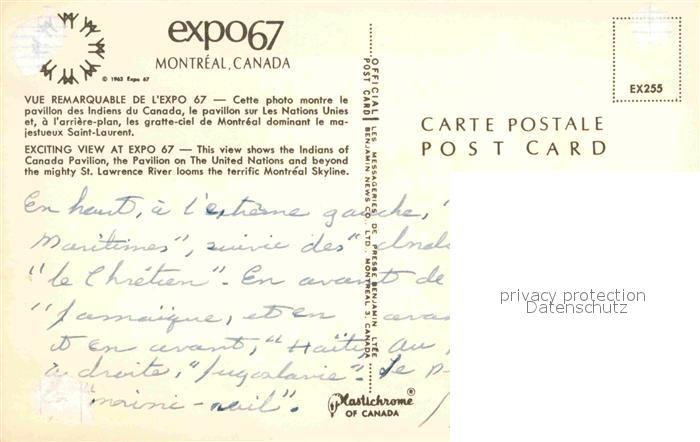 expo67
MONTRÉAL, CANADA
© 1963 Expo 67
VUE REMARQUABLE DE L'EXPO 67 — Cette photo montre le
pavillon des Indiens du Canada, le pavillon sur Les Nations Unies
et, à l'arrière-plan, les gratte-ciel de Montréal dominant le ma-
jestueux Saint-Laurent.
EXCITING VIEW AT EXPO 67 — This view shows the Indians of
Canada Pavilion, the Pavilion on The United Nations and beyond
the mighty St. Lawrence River looms the terrific Montréal Skyline.
En haut, à l'extrême gauche, "
Maritimes", suivie des "
"le Chrétien". En avant de
"Jamaïque, et en avan
et en avant, "Haïti, au
à droite, "Jugoslavie". Le p-
"mini-rail".
OFFICIAL POST CARD
LES MESSAGERIES DE PRESSE BENJAMIN LTÉE
BENJAMIN NEWS CO. LTD., MONTREAL 3, CANADA
Plastichrome®
OF CANADA
EX255
CARTE POSTALE
POST CARD
privacy protection
Datenschutz